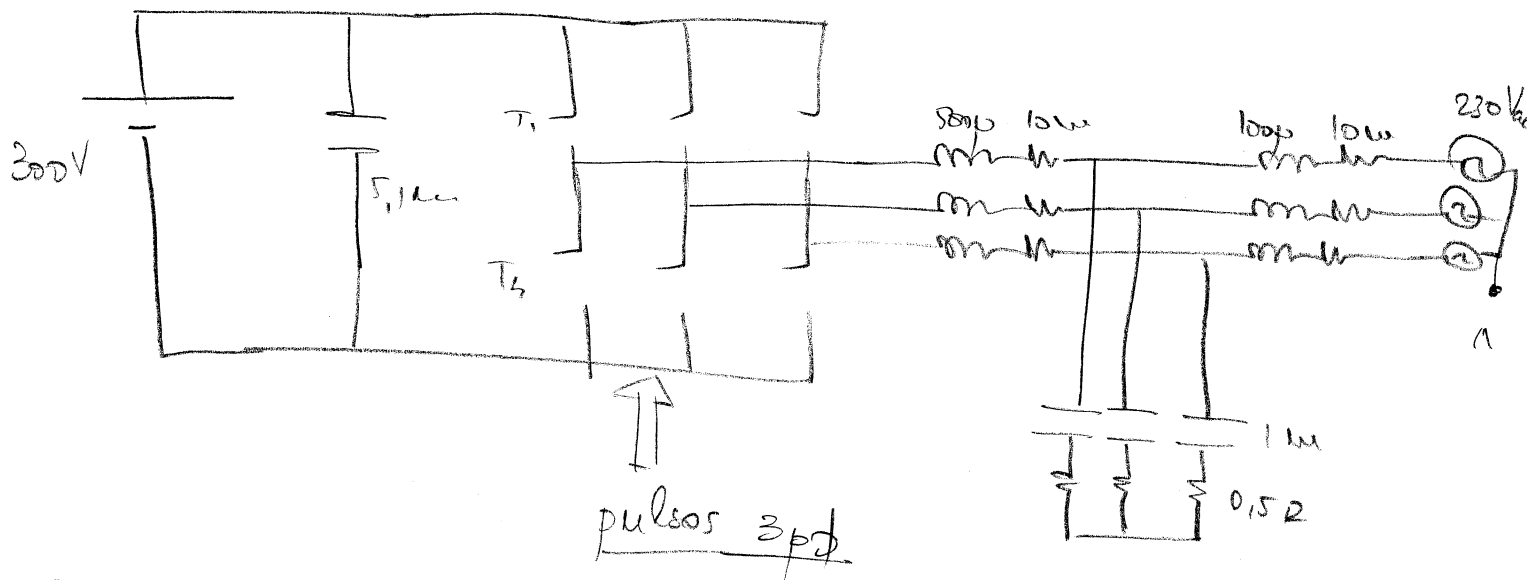 300V
5,1m
T1
T4
500µ 10m
100µ 10m
230Vac
1m
0,5Ω
n
pulsos 3pd